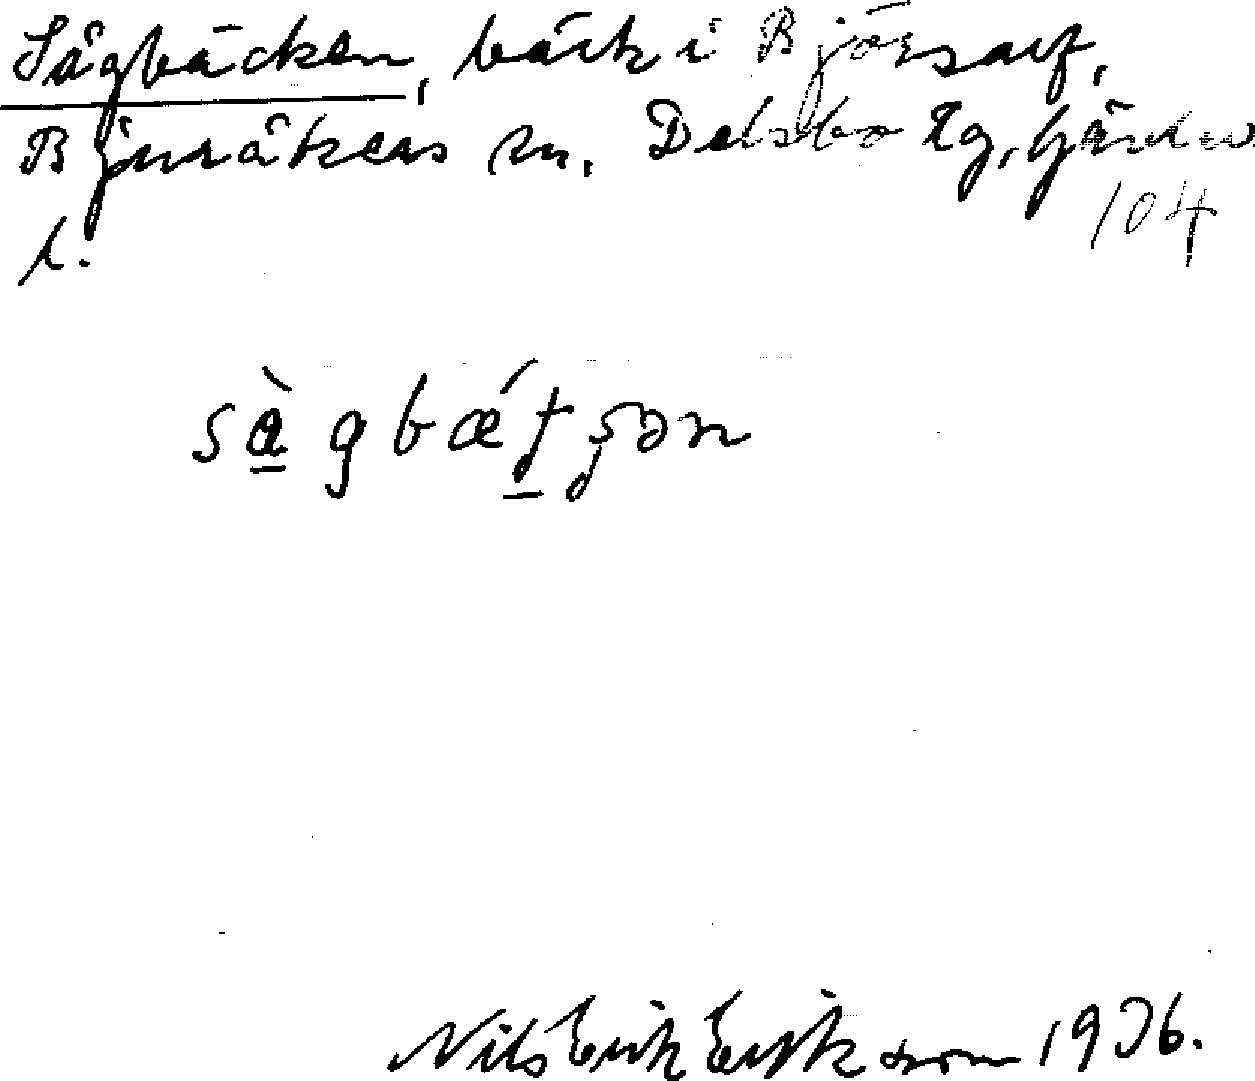 Sågbäcken, bäck i Björsarf,
Bjuråkers sn. Delsbo tg, Gävleb.
104
l.
sàgbǽtʂən
Nils Erik Eriksson 1936.